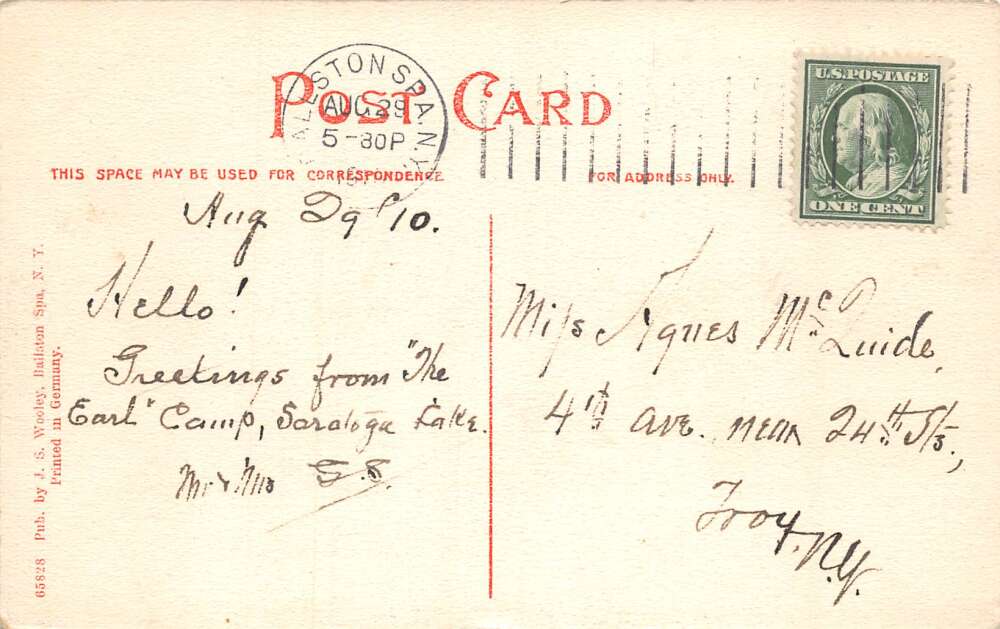 POST CARD
BALLSTON SPA. N.Y.
AUG 29
5-30P
U.S. POSTAGE
ONE CENT
THIS SPACE MAY BE USED FOR CORRESPONDENCE
FOR ADDRESS ONLY.
Aug 29 '10.
Hello!
Greetings from "The
Earl" Camp, Saratoga Lake.
Mr & Mrs G.S.
Miss Agnes McQuide,
4th ave. near 24th St.,
Troy, N.Y.
65828 Pub. by J. S. Wooley, Ballston Spa, N. Y.
Printed in Germany.